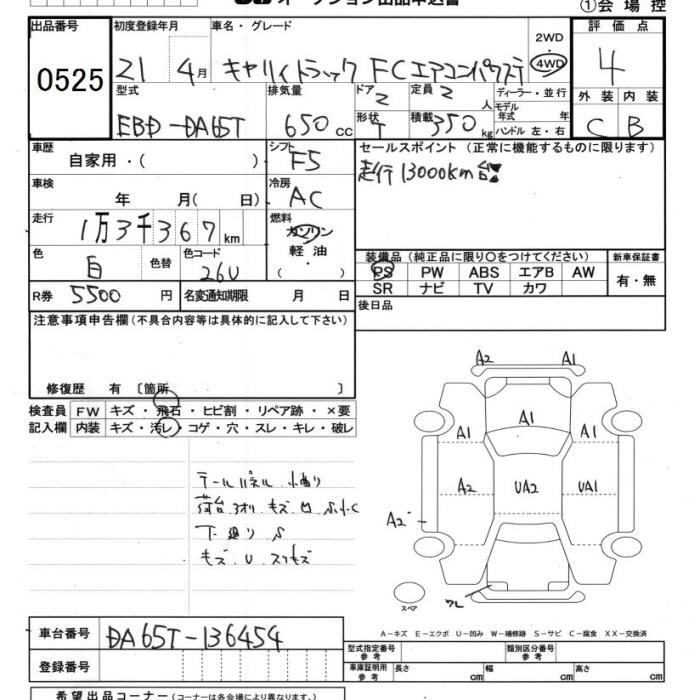 オークション出品申込書
①会場控
出品番号 0525
初度登録年月 21 4月
車名・グレード キャリイトラック FCエアコンパワステ
2WD 4WD
評価点 4
外装 C 内装 B
型式 EBD-DA65T
排気量 650cc
ドア 2 定員 2人
形状 T 積載 350kg
ディーラー・並行
モデル年式 年
ハンドル 左・右
車歴 自家用・( )
シフト F5
車検 年 月( 日)
冷房 AC
走行 1万3千367km
燃料 ガソリン 軽油 ( )
色 白 色替 色コード 26U
R券 5500円 名変通知期限 月 日
セールスポイント (正常に機能するものに限ります)
走行13000km台
装備品 (純正品に限り〇をつけてください)
PS PW ABS エアB AW
SR ナビ TV カワ
新車保証書 有・無
後日品
注意事項申告欄(不具合内容等は具体的に記入して下さい)
修復歴 有 〔箇所 〕
検査員記入欄 FW キズ・飛石・ヒビ割・リペア跡・×要
内装 キズ・汚レ・コゲ・穴・スレ・キレ・破レ
テールパネル 小曲り
荷台 3オリ キズ 凹 S
下廻り S
キズ U スリキズ
A2 A1
A1 A1 A1
A2 UA2 UA1
A2
ワレ
スペア
A-キズ E-エクボ U-凹み W-補修跡 S-サビ C-腐食 XX-交換済
車台番号 DA65T-136454
登録番号
型式指定番号 参考 類別区分番号 参考
車庫証明用 参考 長さ cm 幅 cm 高さ cm
希望出品コーナー(コーナーは各会場により異なります。)